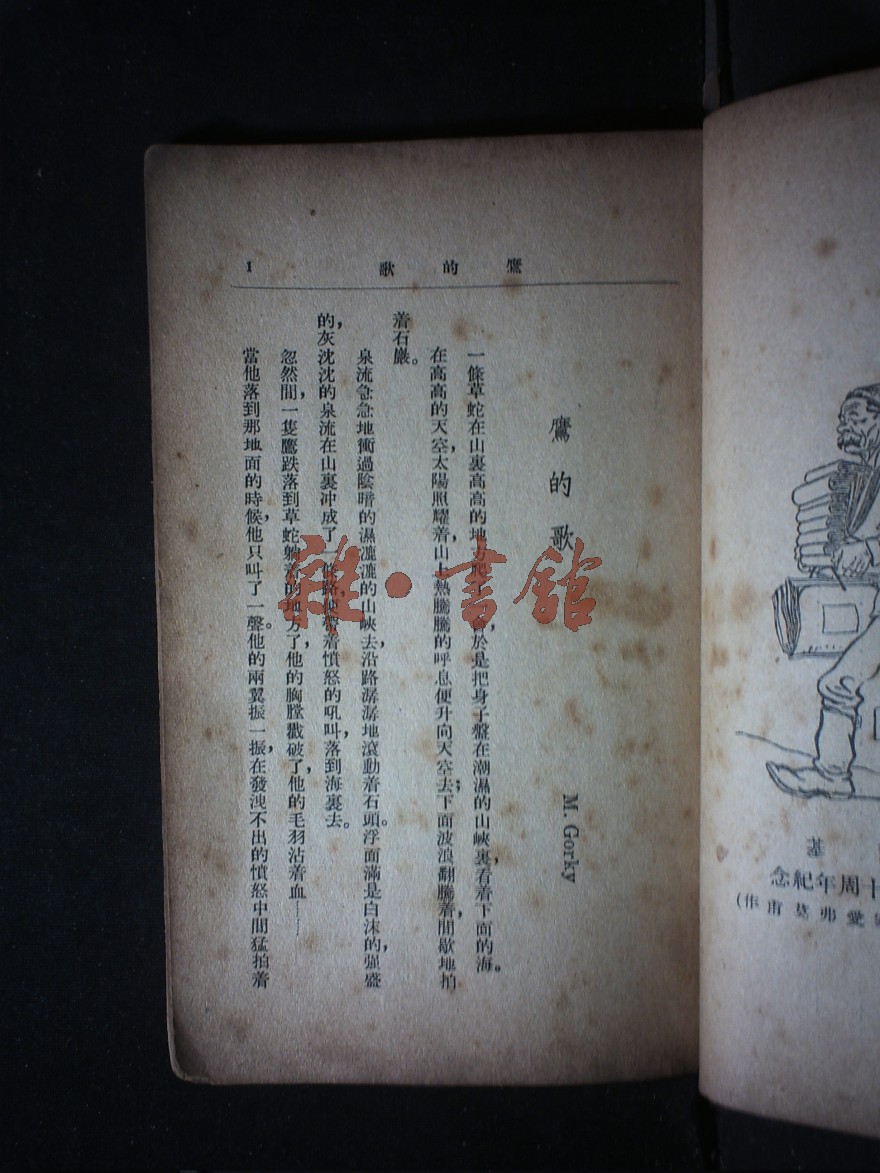 鷹的歌
1
鷹的歌
M. Gorky
一條草蛇在山裏高高的地方爬了會於是把身子盤在潮濕的山峽裏，看着下面的海。
在高高的天空，太陽照耀着，山上熱騰騰的呼息便升向天空去；下面波浪翻騰着，間歇地拍
着石巖。
泉流急急地衝過陰暗的濕漉漉的山峽去，沿路潺潺地滾動着石頭。浮面滿是白沫的，强盛
的，灰沈沈的泉流在山裏沖成了一條路，便帶着憤怒的吼叫，落到海裏去。
忽然間，一隻鷹跌落到草蛇躺着的地方了，他的胸膛戳破了，他的毛羽沾着血……
當他落到那地面的時候，他只叫了一聲。他的兩翼振一振，在發洩不出的憤怒中間猛拍着
雜·書館
基
十周年紀念
愛弗莫甫作)